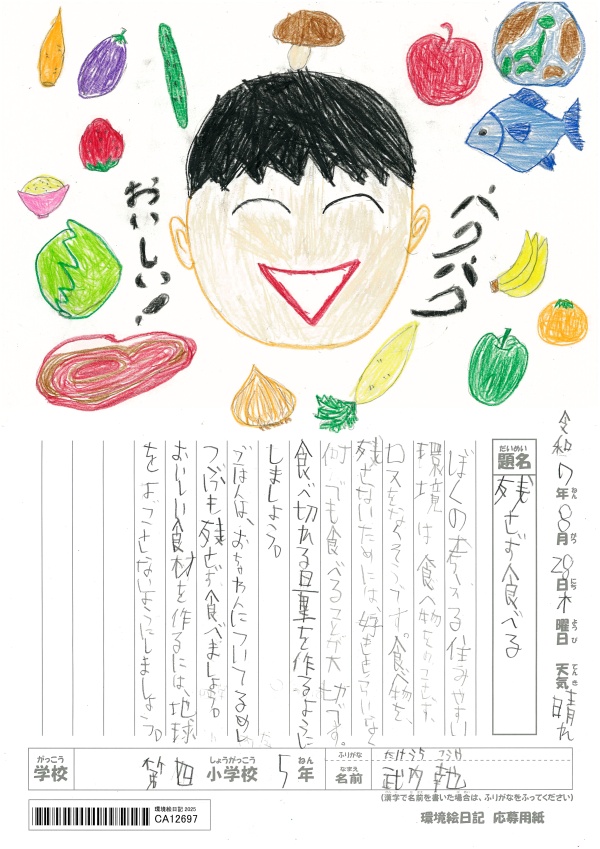 おいしい!
パクパク
令和7年8月28日木曜日 天気 晴れ
ねん がつ にち ようび てんき
だいめい
題名
残さず食べる
ぼくの考がえる住みやすい
環境は食べ物をのこさず、
ロスをなくそうです。食べ物を、
残さないためには、好ききらいなく
何でも食べることが大切です。
食べ切れる量を作るように
しましょう。
ごはんは、おちゃわんについてるめし
つぶも残さず食べましょう。
おいしい食材を作るには、地球
をよごさないようにしましょう。
がっこう しょうがっこう ねん
学校 第四 小学校 5年
ふりがな たけうち
なまえ
名前 武内
(漢字で名前を書いた場合は、ふりがなをふってください)
環境絵日記 2025
CA12697
環境絵日記 応募用紙